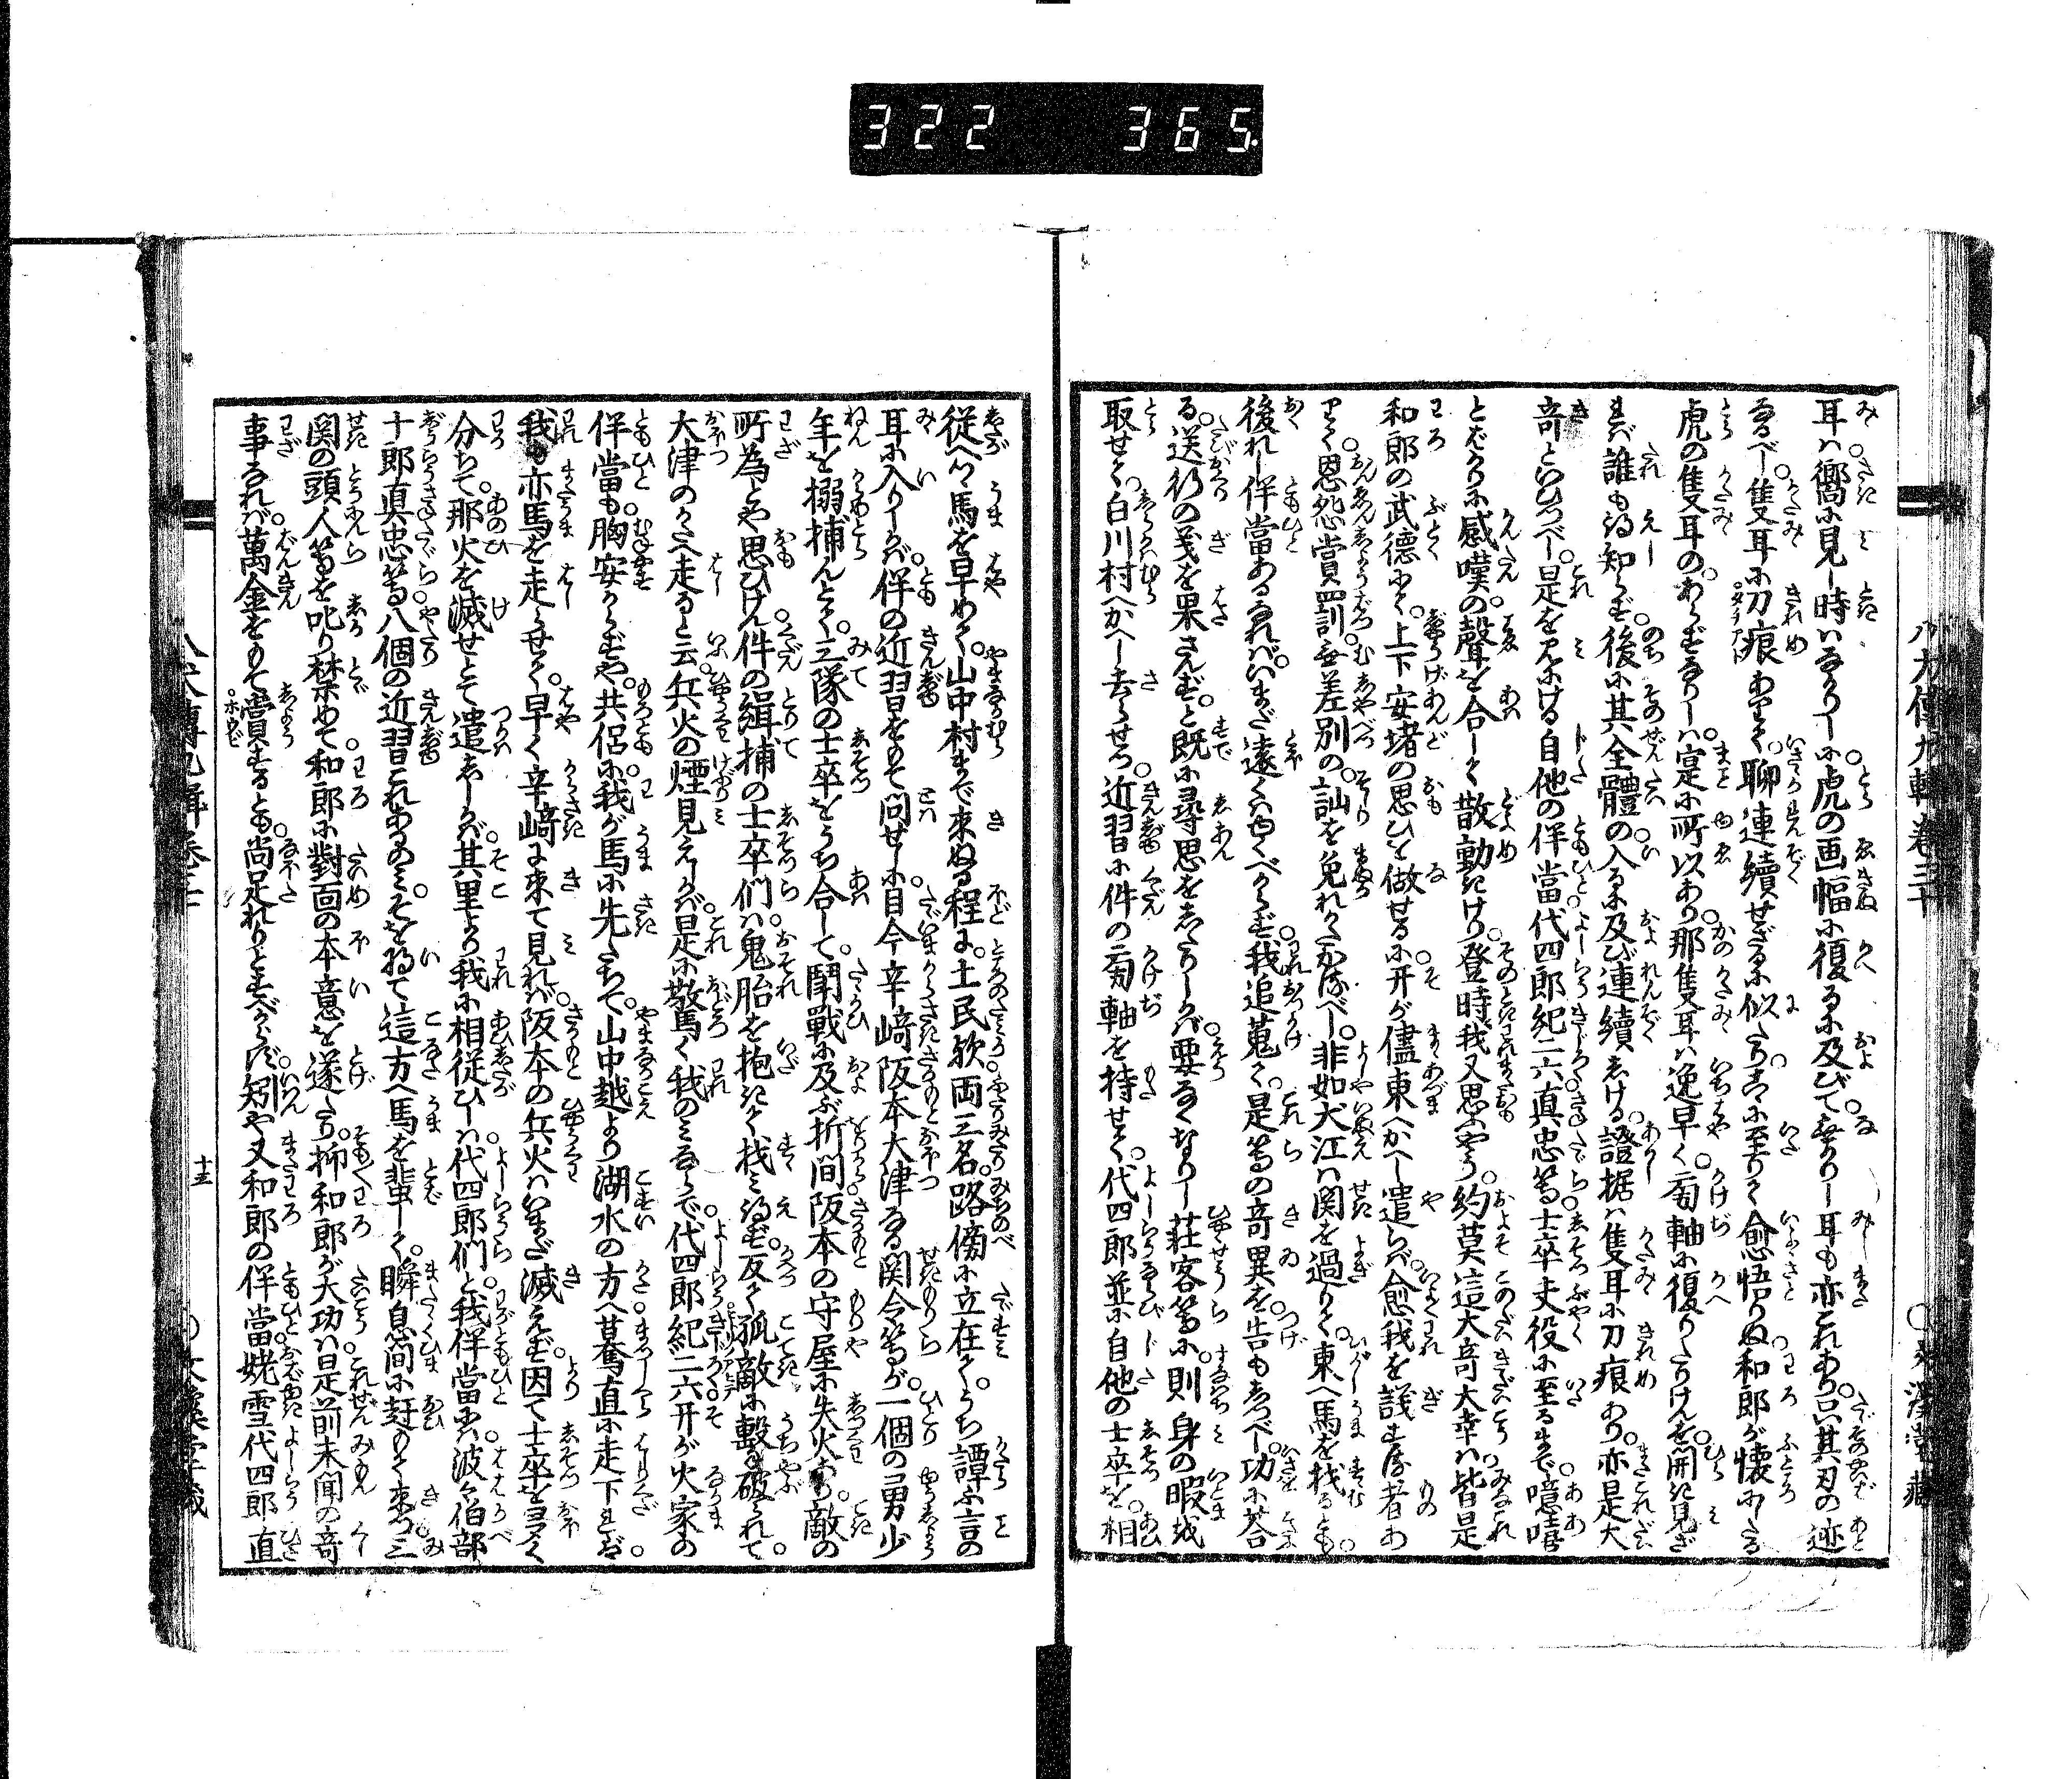 322 365.
八犬傳九輯巻三十
耳ハ嚮に見し時ハなかりしに虎の画幅に復るに及びてなかりし耳も亦これあり只其刃の迹
なるべし隻耳に刀痕ありて聊連續せざるに似たり[爰]に至りて愈悟りぬ和郎が懐にしたる
虎の隻耳のあらずなりしハ寔に所以あり那隻耳ハ逸早く画軸に復りたりけんを開き見ざ
れバ誰も得知らず後に其全體の入るに及び連續しける證据ハ隻耳に刀痕あり亦是大
竒といひつべし是をみける自他の伴當代四郎紀二六真忠等士卒夫役に至るまで噫嘻
とばかりに感嘆の聲を合して散動きけり登時我又思ふやう約莫這大竒大幸ハ皆是
和郎の武徳にて上下安堵の思ひを做せるに开が儘東へかへし遣らバ愈我を議する者あ
りて恩怨賞罰無差別の訕を免れがたかるべし非如犬江ハ関を過りて東へ馬を找るとも
後れし伴當あるなれバいまだ遠くハゆくべからず我追蒐て是等の竒異を告もしつべし功に答
る送行の義を果さんず と既に尋思をしたりしかバ要なくなりし荘客等に則身の暇を
取せて白川村へかへし去らせつ近習に件の画軸を持せて代四郎並に自他の士卒を相
從へつ馬を早めて山中村まで來ぬる程に土民欤両三名路傍に立在てうち譚ふ言の
耳に入りしかバ伴の近習をもて問せしに自今辛﨑阪本大津なる関令等が一個の勇少
年を搦捕んとて三隊の士卒をうち合して鬪戰に及ぶ折間阪本の守屋に失火あり敵の
所為とや思ひけん件の緝捕の士卒們ハ鬼胎を抱きて找み得ず反て孤敵に擊破られて
大津のかたへ走ると云兵火の煙見えしかバ是に驚く我のみならで代四郎紀二六开が火家の
伴當も胸安からずや共侶に我が馬に先たちて山中越より湖水の方へ驀直に走下れバ
我も亦馬を走らせて早く辛﨑に來て見れバ阪本の兵火ハいまだ滅えず因て士卒を多く
分ちて那火を滅せとて遣ししかバ其里より我に相從ひしハ代四郎們と我伴當ハ波々伯部
十郎真忠等八個の近習これあるのみそを將て這方へ馬を蜚して瞬息間に赶もて來つ三
関の頭人等を叱り禁めて和郎に對面の本意を遂たり抑和郎が大功ハ是前未聞の竒
事なれバ萬金をもて賞するとも尚足れりとすべからず矧や又和郎の伴當姥雪代四郎直
八犬傳九輯巻三十
十五